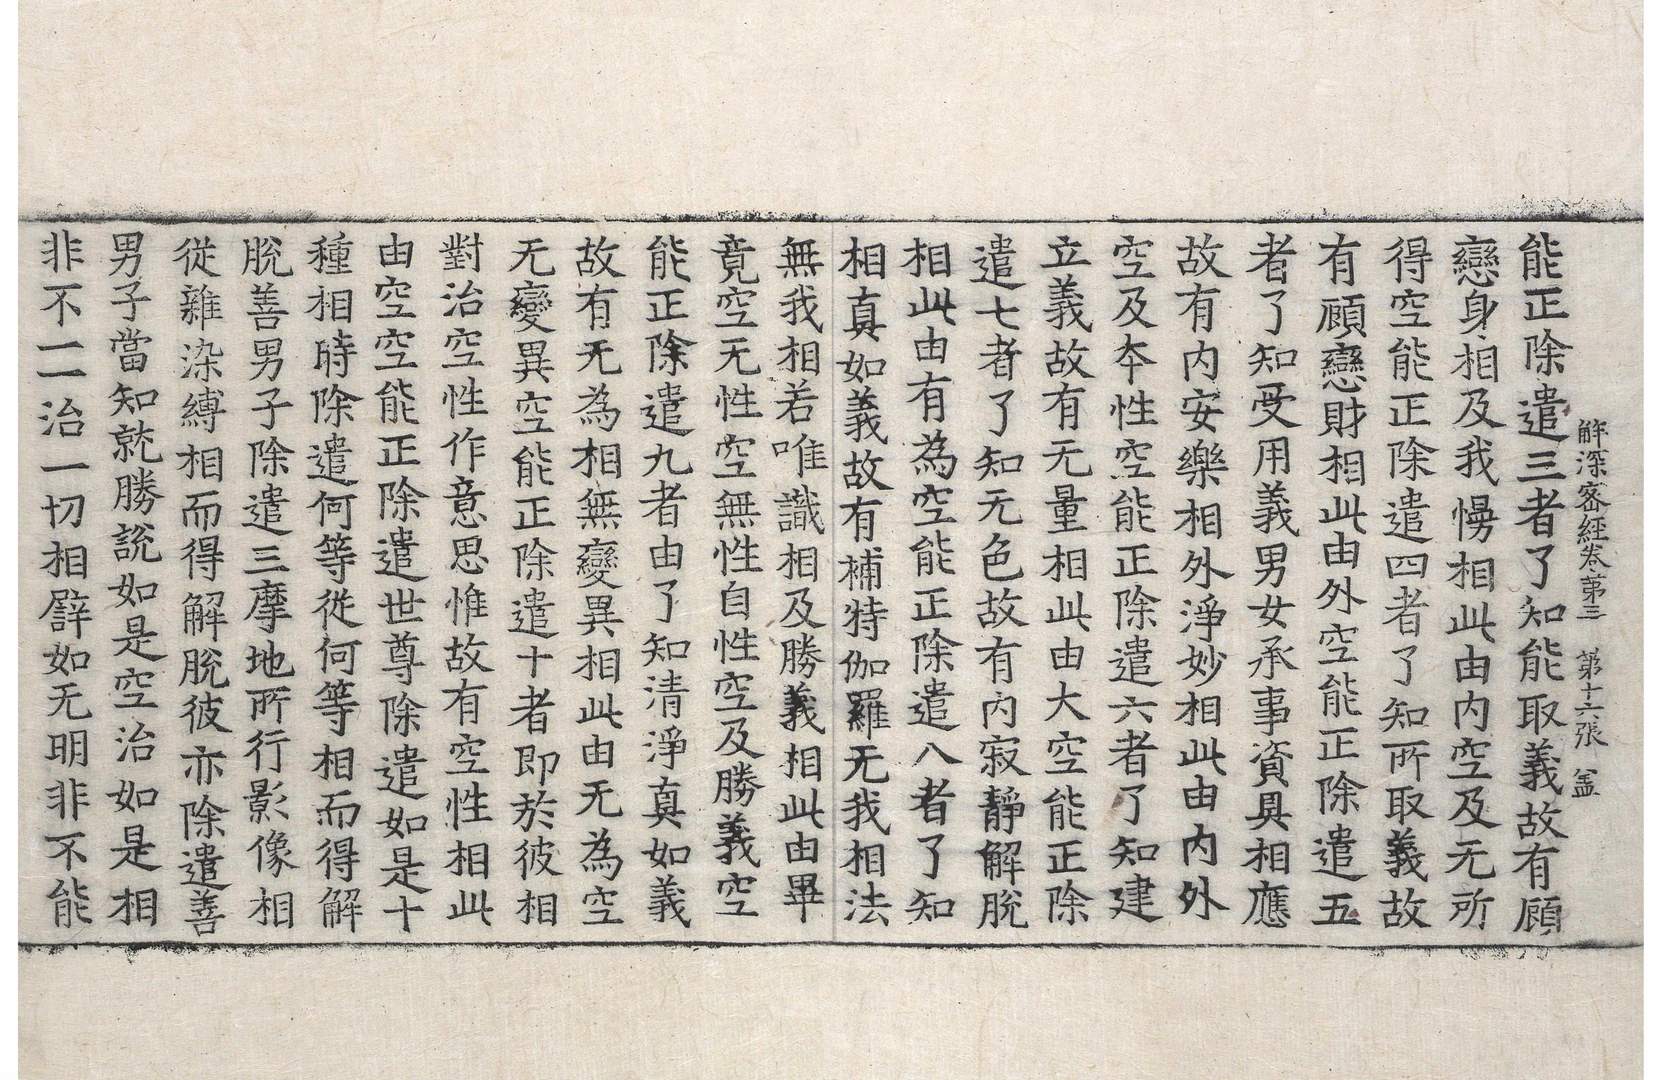 解深密經卷第三 第十六張 盖
能正除遣三者了知能取義故有顧
戀身相及我慢相此由内空及无所
得空能正除遣四者了知所取義故
有顧戀財相此由外空能正除遣五
者了知受用義男女承事資具相應
故有内安樂相外淨妙相此由内外
空及本性空能正除遣六者了知建
立義故有无量相此由大空能正除
遣七者了知无色故有内寂靜解脫
相此由有為空能正除遣八者了知
相真如義故有補特伽羅无我相法
無我相若唯識相及勝義相此由畢
竟空无性空無性自性空及勝義空
能正除遣九者由了知清淨真如義
故有无為相無變異相此由无為空
无變異空能正除遣十者即於彼相
對治空性作意思惟故有空性相此
由空空能正除遣世尊除遣如是十
種相時除遣何等從何等相而得解
脫善男子除遣三摩地所行影像相
從雜染縛相而得解脫彼亦除遣善
男子當知就勝說如是空治如是相
非不一一治一切相譬如无明非不能